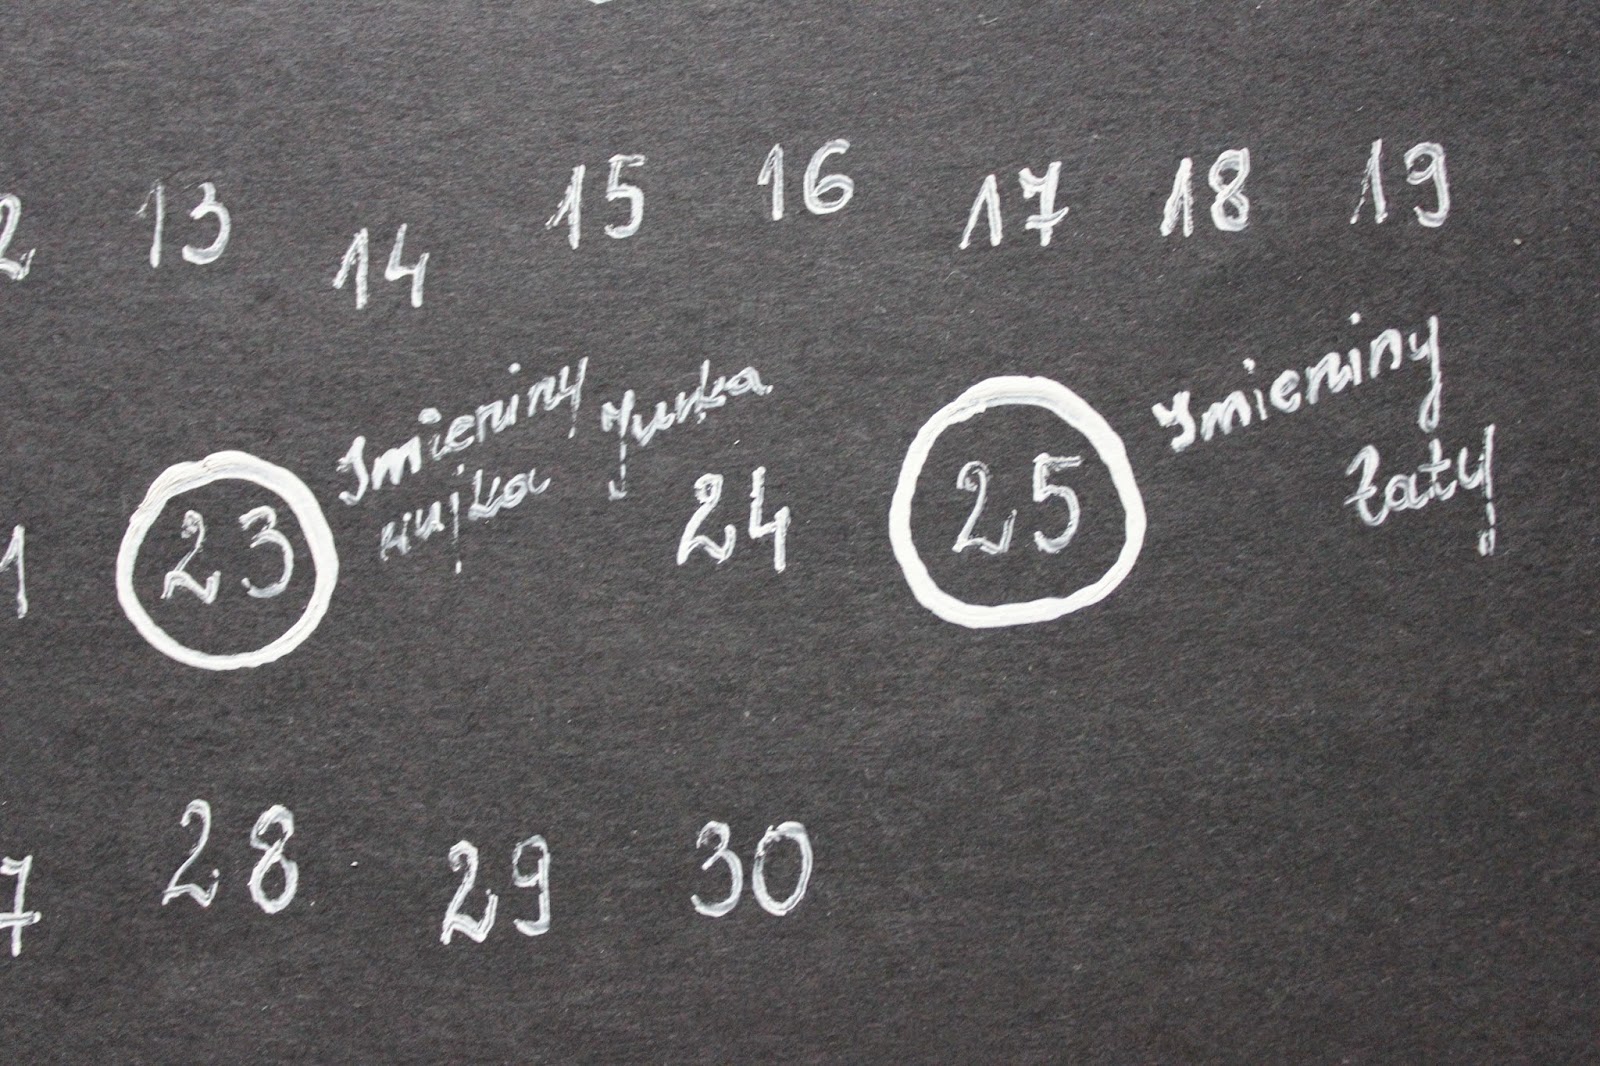 2 13 14 15 16 17 18 19
1 23 Imieniny Jurka 24 25 Imieniny
wujka taty!
7 28 29 30